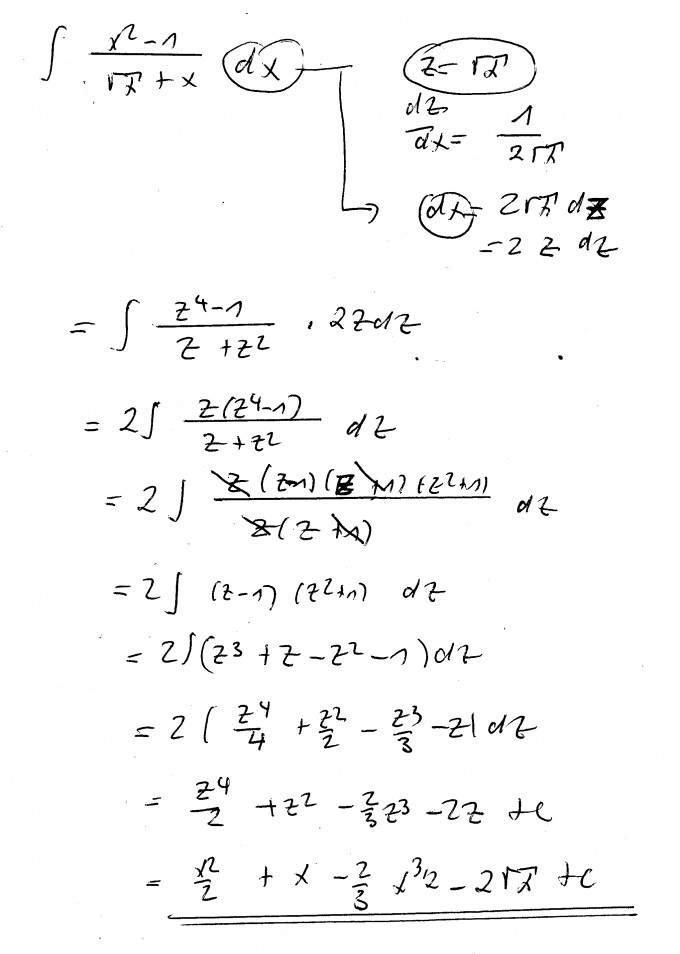 ∫ (x² - 1)/(√x + x) dx
z = √x
dz/dx = 1/(2√x)
dx = 2√x dz
= 2 z dz
= ∫ (z⁴ - 1)/(z + z²) · 2z dz
= 2∫ z(z⁴ - 1)/(z + z²) dz
= 2∫ z(z-1)(z+1)(z²+1)/(z(z+1)) dz
= 2∫ (z-1)(z²+1) dz
= 2∫(z³ + z - z² - 1)dz
= 2(z⁴/4 + z²/2 - z³/3 - z) dz
= z⁴/2 + z² - 2/3 z³ - 2z + c
= x²/2 + x - 2/3 x^3/2 - 2√x + c